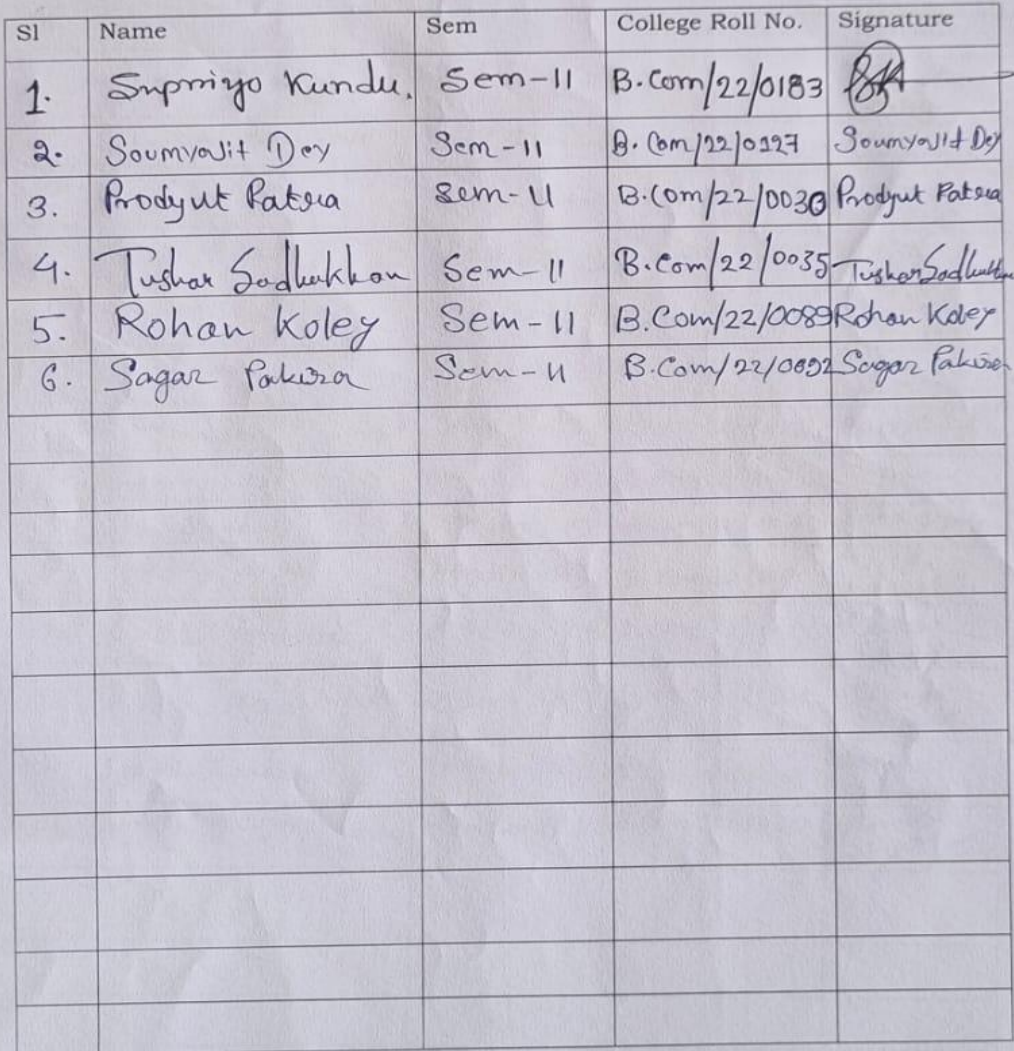 Sl Name Sem College Roll No. Signature
1. Supriyo Kundu. Sem-II B.Com/22/0183
2. Soumyajit Dey Sem-II B.Com/22/0127 Soumyajit Dey
3. Prodyut Patra Sem-II B.Com/22/0030 Prodyut Patra
4. Tushar Sadhukhan Sem-II B.Com/22/0035 Tushar Sadhukhan
5. Rohan Koley Sem-II B.Com/22/0089 Rohan Koley
6. Sagar Pakira Sem-II B.Com/22/0092 Sagar Pakira